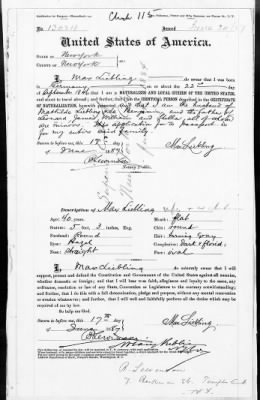 No. 13024 Issued June 20/87
United States of America.
STATE OF New York
COUNTY OF New York
I, Max Liebling do swear that I was born
in Germany on or about the 22nd day
of September 1846; that I am a NATURALIZED AND LOYAL CITIZEN OF THE UNITED STATES,
and about to travel abroad; and further, that I am the IDENTICAL PERSON described in the CERTIFICATE
OF NATURALIZATION, herewith presented and that I am the husband of
Mathilde Liebling and the father of
Leonard James William and Stella all of whom
are minors. This application for a passport is
for my entire said family.
Sworn to before me, this 17th day
of June 1887
Max Liebling
Notary Public.
Description of Max Liebling
Age: 40 years.
Stature: 5 feet, 3 inches, Eng.
Forehead: Round
Eyes: Hazel
Nose: Straight
Mouth:
Chin: round
Hair: turning Gray
Complexion: Dark & florid
Face: oval
I, Max Liebling do solemnly swear that I will
support, protect and defend the Constitution and Government of the United States against all enemies,
whether domestic or foreign; and that I will bear true faith, allegiance and loyalty to the same, any
ordinance, resolution or law of any State, Convention or Legislature to the contrary notwithstanding;
and further, that I do this with a full determination, pledge and purpose, without any mental reservation
or evasion whatsoever; and further, that I will well and faithfully perform all the duties which may be
required of me by law.
So help me God.
Sworn to before me, this 17th day
of June 1887
Max Liebling
N.Y.